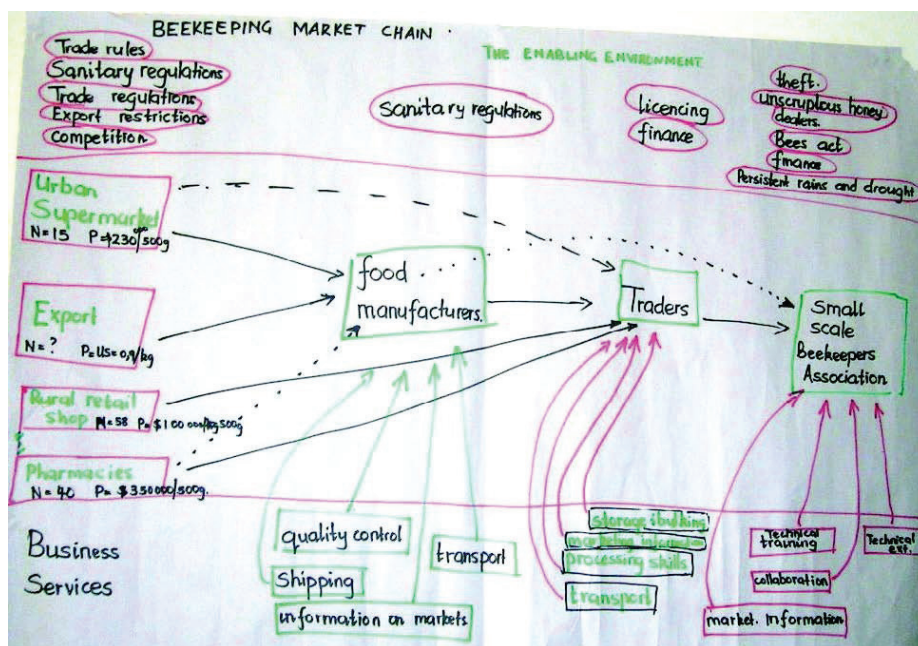 BEEKEEPING MARKET CHAIN.
THE ENABLING ENVIRONMENT
Trade rules
Sanitary regulations
Trade regulations
Export restrictions
competition
sanitary regulations
Licencing
finance
theft.
unscruplous honey
dealers.
Bees act
finance
Persistent rains and drought
Urban
Supermarket
N=15 P=$230/500g
Export
N=? P=US=0,9/kg
Rural retail
shop N=58
Pharmacies
N=40 P=$350000/500g.
food
manufacturers.
Traders
Small
scale
Beekeepers
Association
Business
Services
quality control
shipping
information on markets
transport
storage
marketing information
processing skills
transport
Technical
training
collaboration
market. information
Technical
ext.